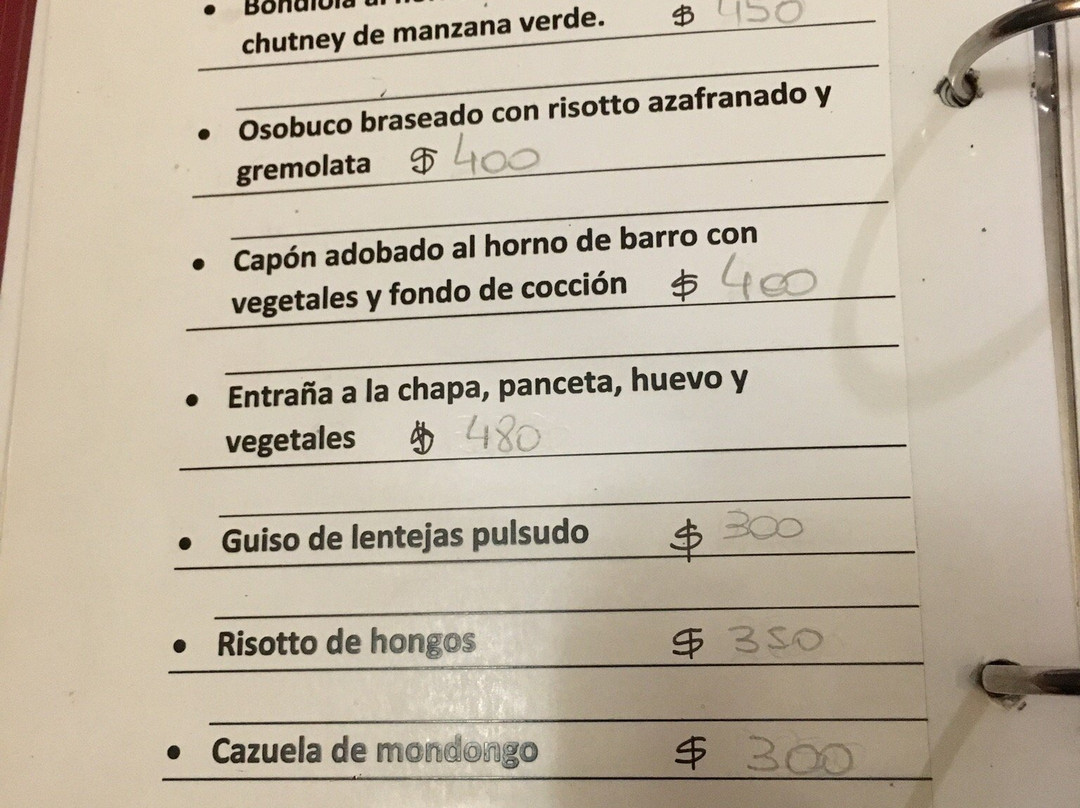 • Bondiola al
chutney de manzana verde. $ 450
• Osobuco braseado con risotto azafranado y
gremolata $ 400
• Capón adobado al horno de barro con
vegetales y fondo de cocción $ 400
• Entraña a la chapa, panceta, huevo y
vegetales $ 480
• Guiso de lentejas pulsudo $ 300
• Risotto de hongos $ 350
• Cazuela de mondongo $ 300